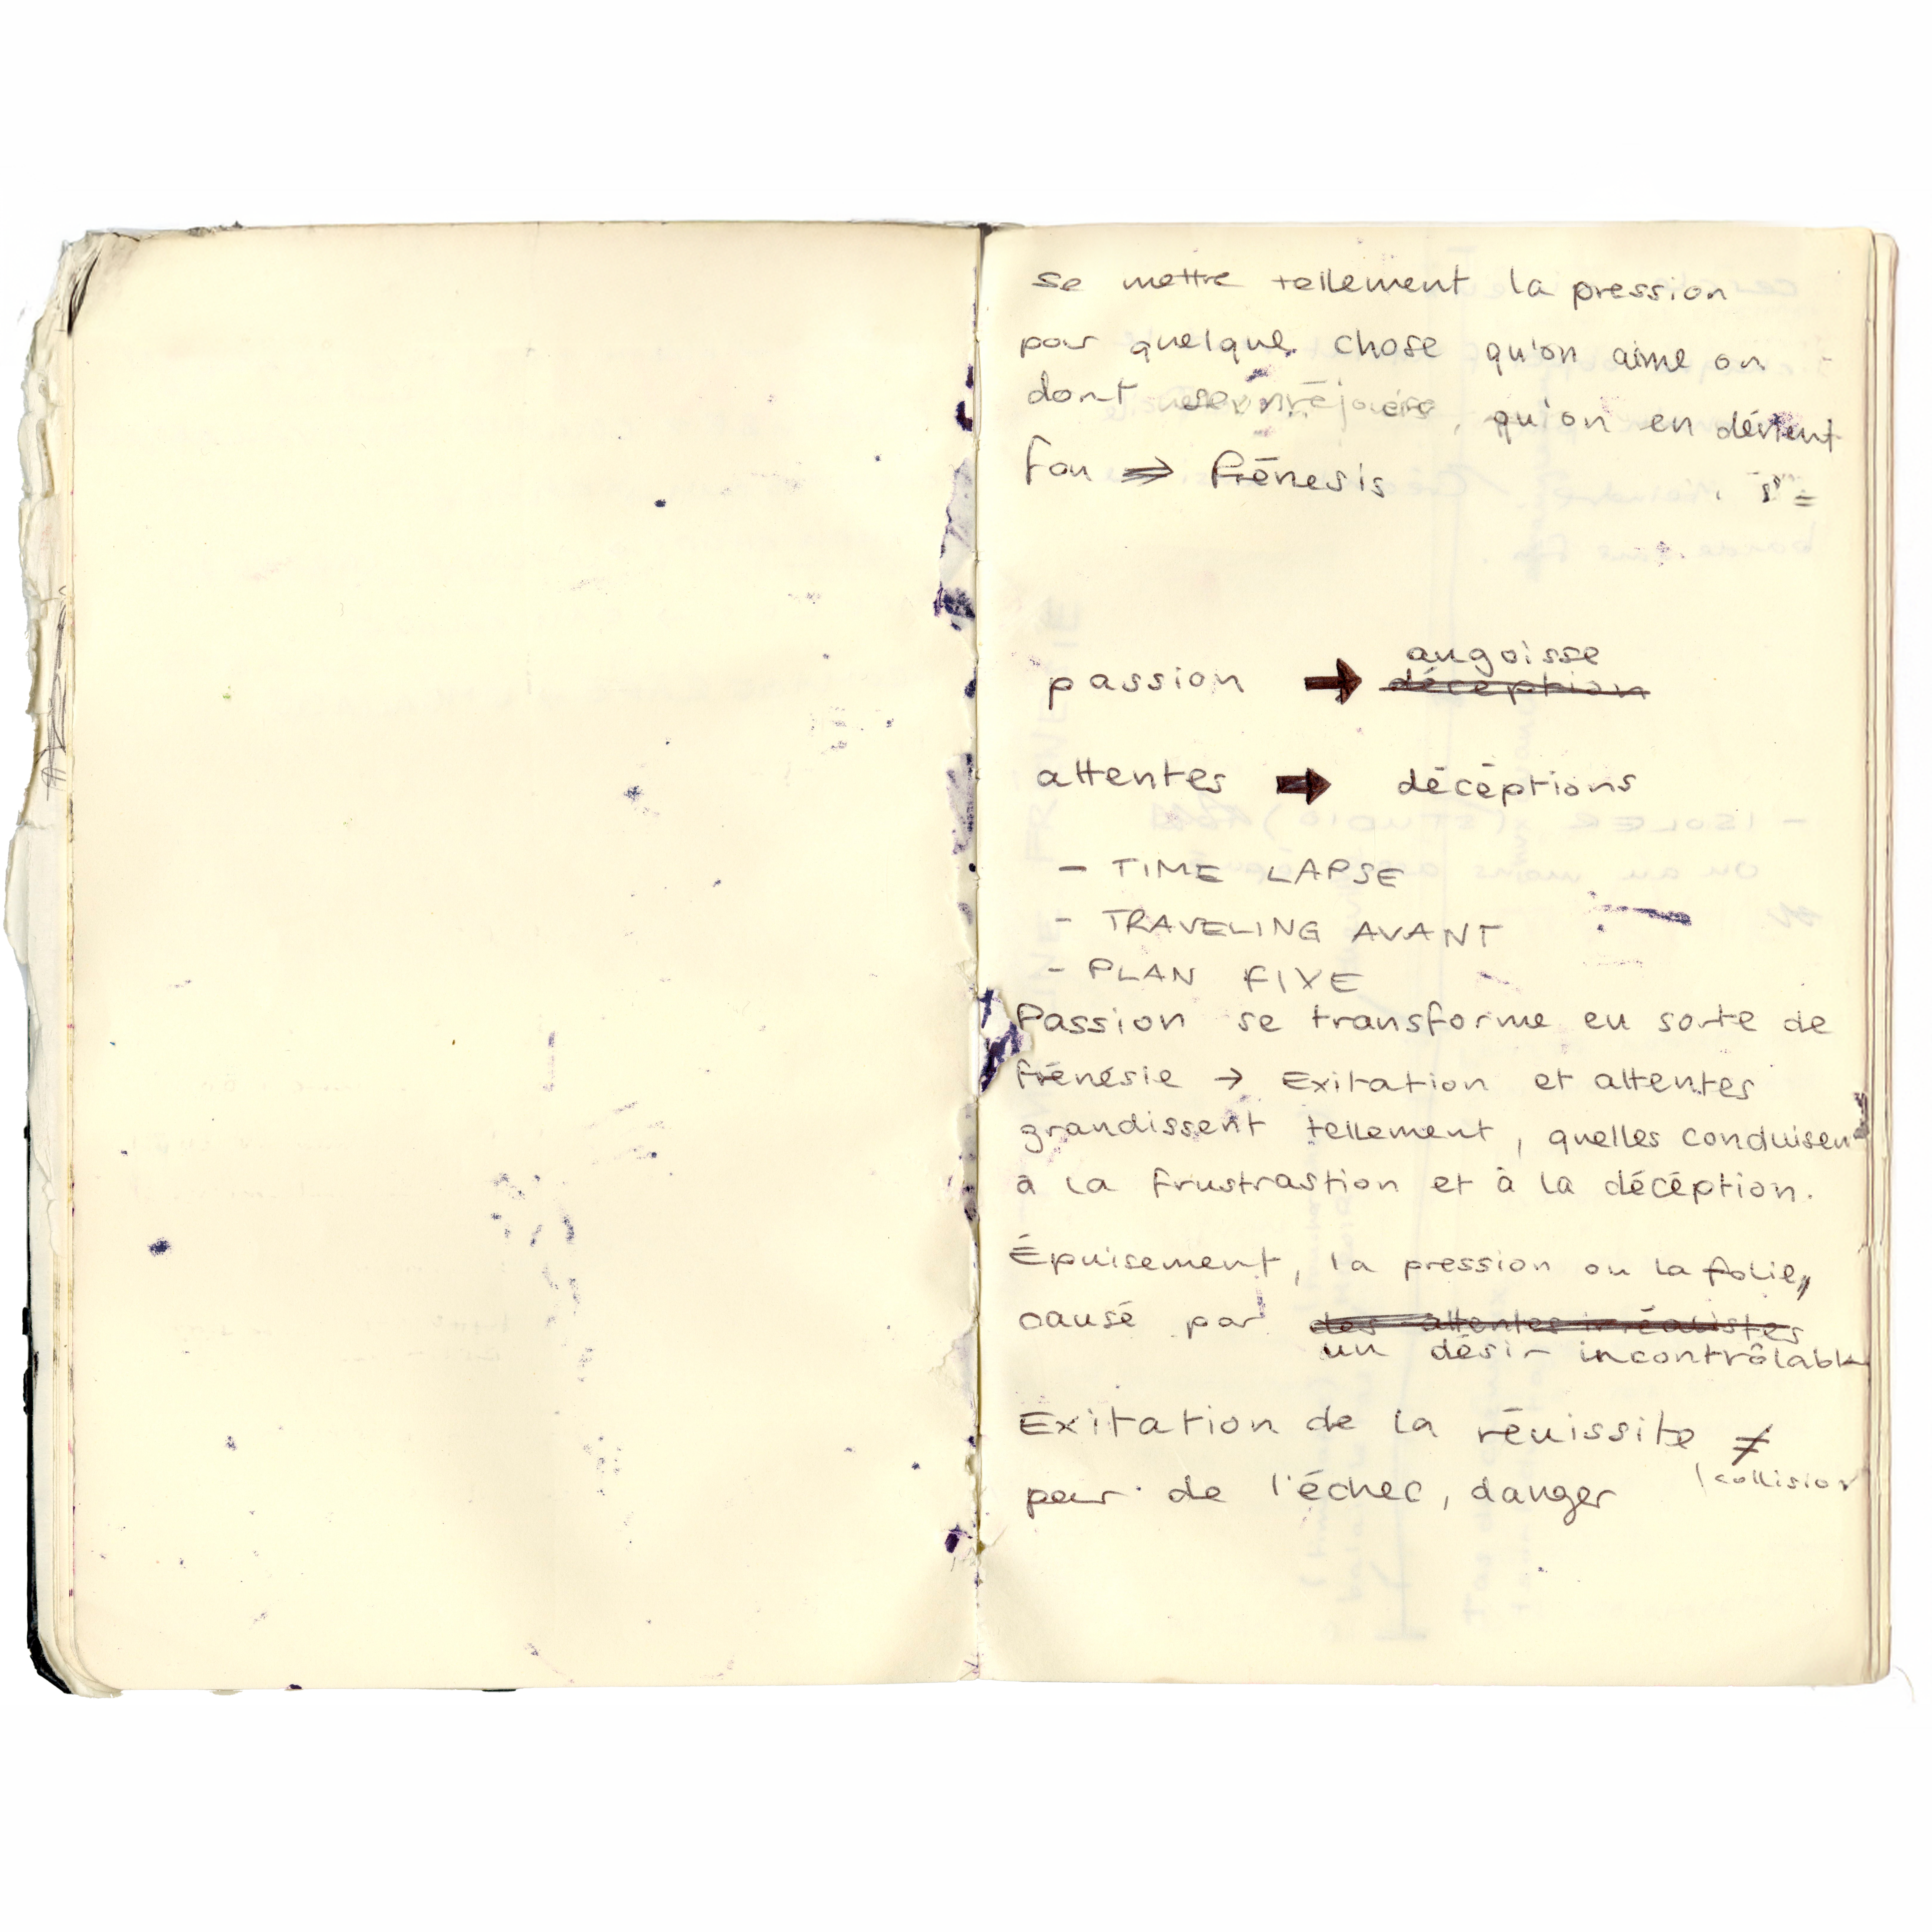 se mettre tellement la pression
pour quelque chose qu'on aime ou
dont se réjouis, qu'on en dévient
fou => frénesis
angoisse
passion → déception
attentes → décéptions
- TIME LAPSE
- TRAVELING AVANT
- PLAN FIXE
Passion se transforme en sorte de
frénésie → Exitation et attentes
grandissent tellement, quelles conduisen
à la frustrastion et à la décéption.
Épuisement, la pression ou la folie,
causé par des attentes irréalistes
un désir incontrôlable
Exitation de la réuissite ≠
collision
peur de l'échec, danger